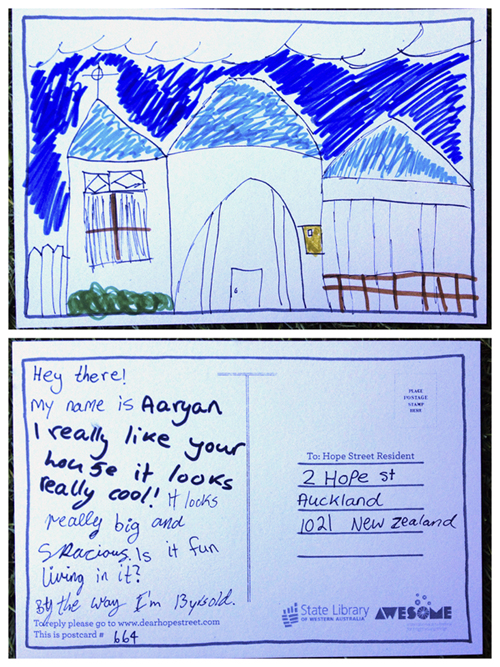 Hey there!
My name is Aaryan
I really like your
house it looks
really cool! It looks
really big and
spacious. Is it fun
living in it?
By the way I'm 13 yrs old.
To reply please go to www.dearhopestreet.com
This is postcard # 664
PLACE
POSTAGE
STAMP
HERE
To: Hope Street Resident
2 Hope st
Auckland
1021 New Zealand
State Library
OF WESTERN AUSTRALIA
AWESOME